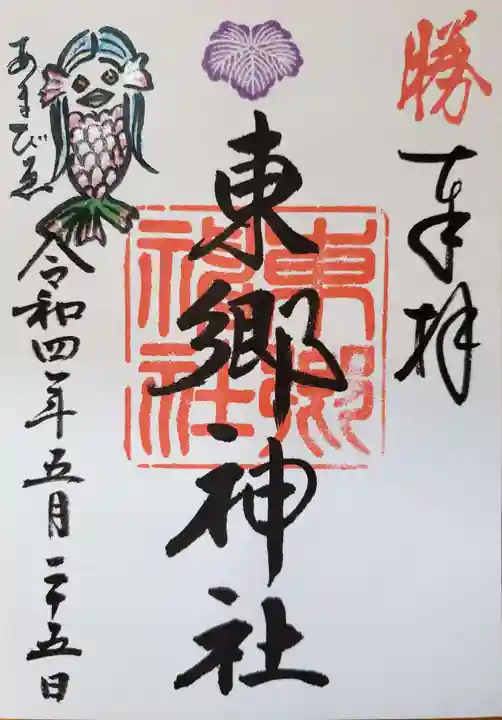 勝
奉拝
東郷神社
東郷
神社
あまびゑ
令和四年五月二十五日